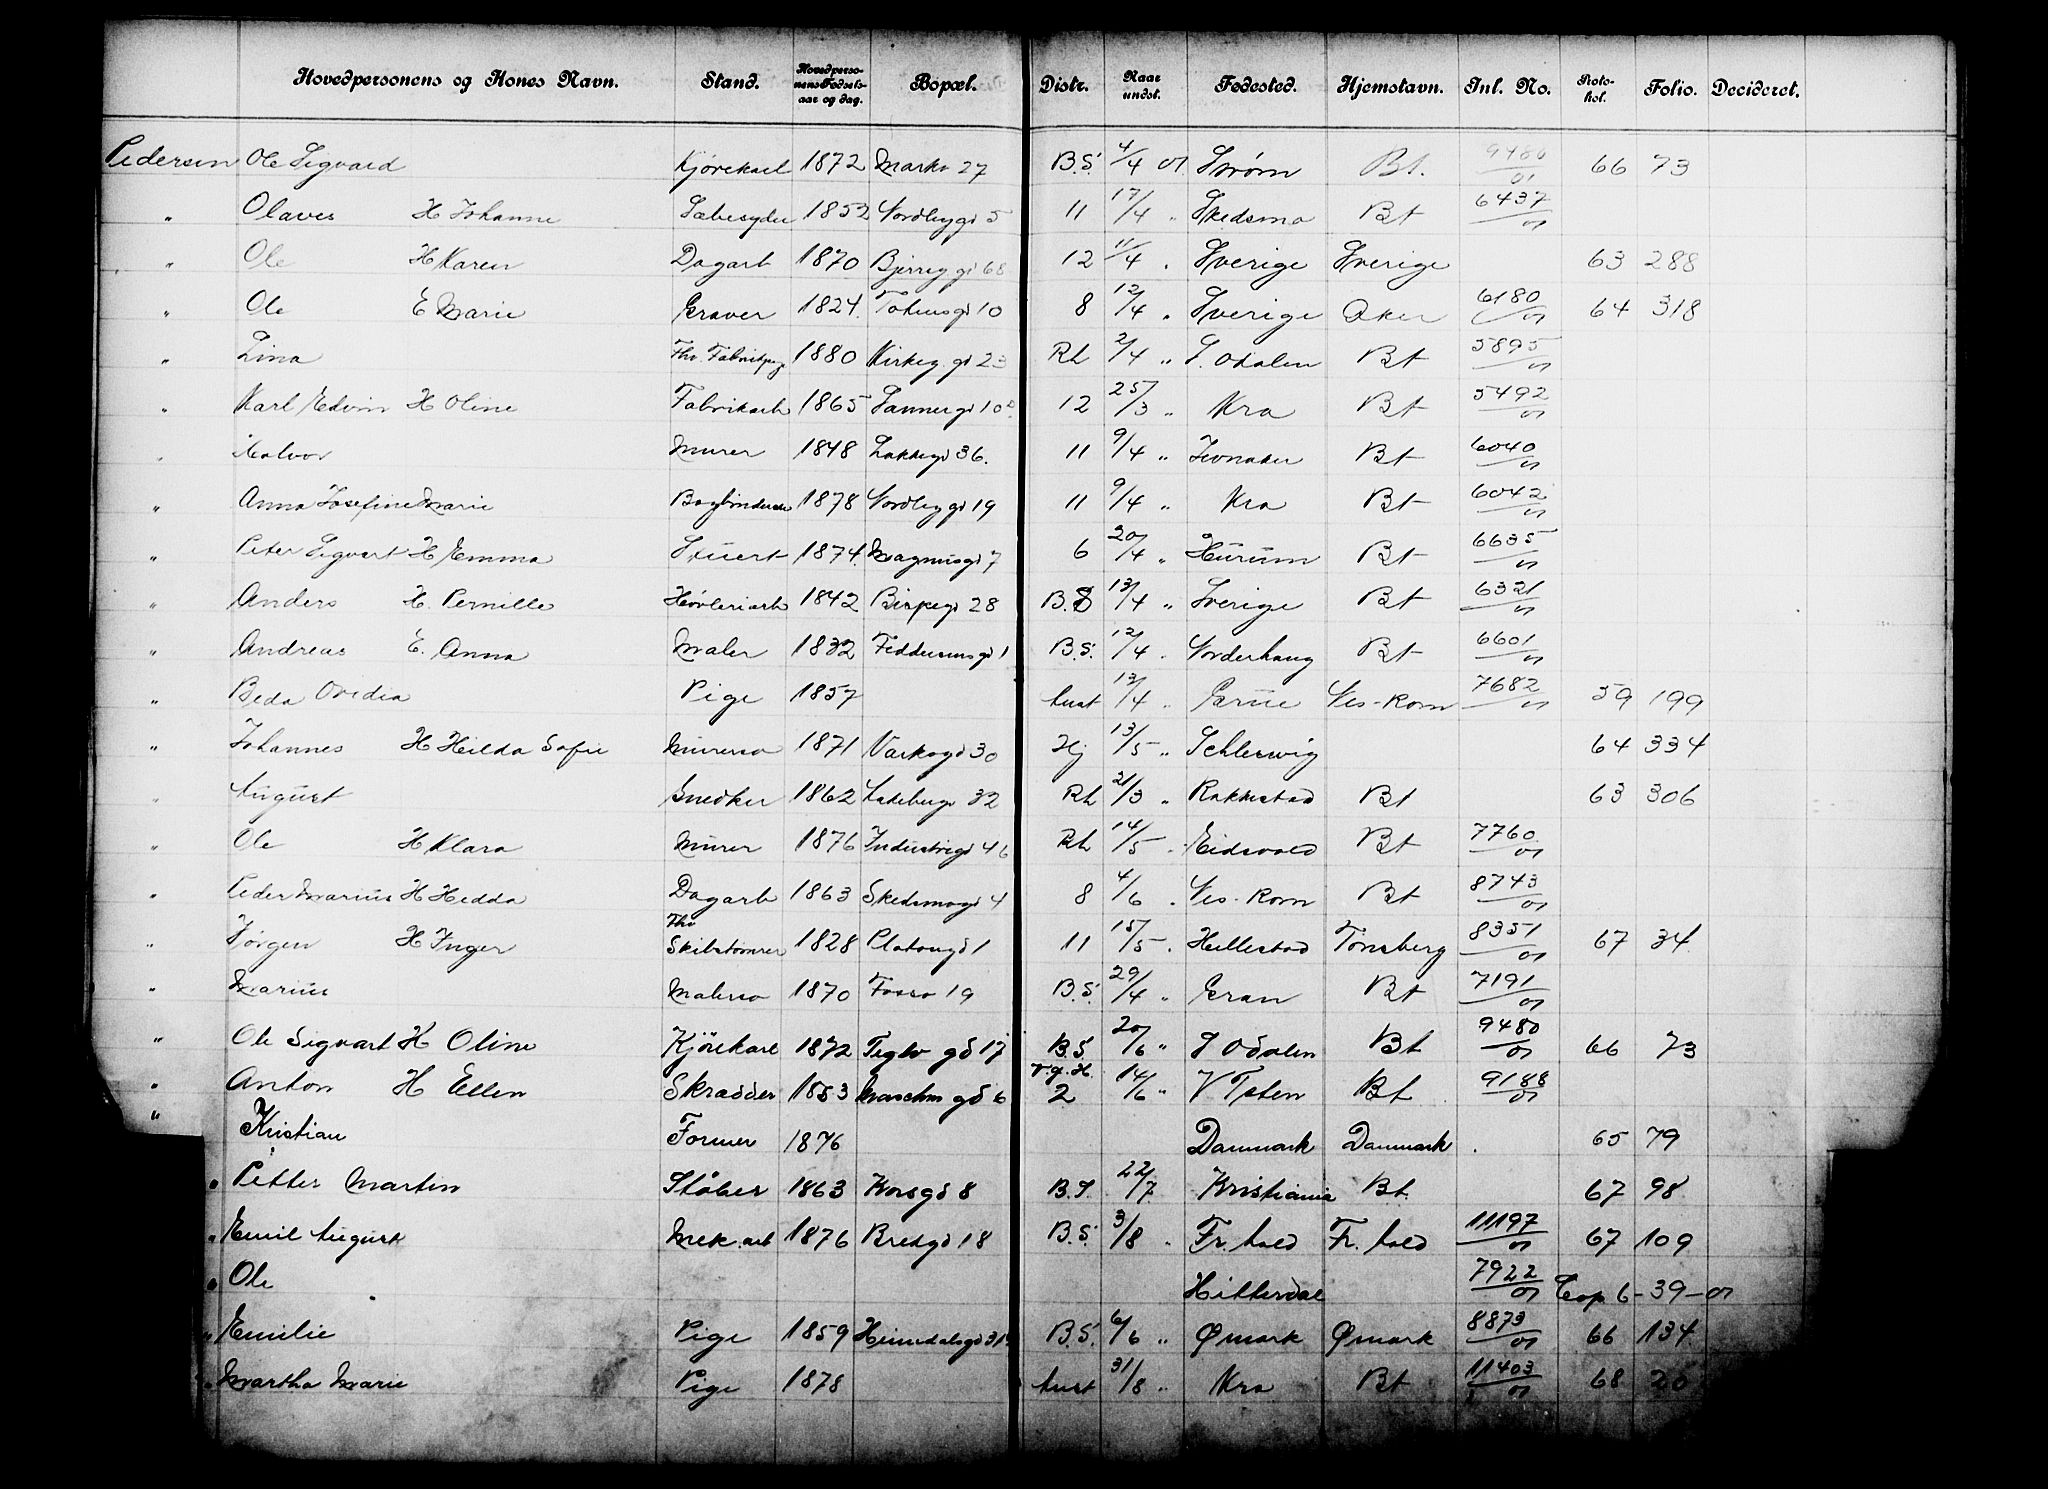 Hovedpersonens og Kones Navn. Stand. Hovedpersonens Fødselsaar og dag. Bopæl. Distr. Naar undst. Fødested. Hjemstavn. Inl. No. Protokol. Folio. Decideret.
Pedersen Ole Sigvard Kjørekarl 1872 Markv 27 B.S. 4/4 01 Strøm Bt. 9480/01 66 73
" Olaves H Johanne Sæbesyder 1852 Nordbygd 5 11 17/4 " Skedsmo Bt 6437/01
" Ole H Karen Dagarb 1870 Bjerreg gd 68 12 11/4 " Sverige Sverige 63 288
" Ole E Marie Graver 1824 Totensgd 10 8 12/4 " Sverige Aker 6180/01 64 318
" Lina Fhv. Fabrikpige 1880 Kirkeg gd 23 Rh 2/4 " S. Odalen Bt 5895/01
" Karl Edvin H Oline Fabrikarb 1865 Sannergd 10 12 25/3 " Kra Bt 5492/01
" Halvor Murer 1848 Lakkegd 36. 11 9/4 " Jevnaker Bt 6040/01
" Anna Josefine Marie Bogbinderske 1878 Nordbygd 19 11 9/4 " Kra Bt 6042/01
" Peter Sigvart H Emma Stuert 1874. Magnusgd 7 6 20/4 " Hurum Bt 6635/01
" Anders H. Pernille Høvleriarb 1842 Bispegd 28 B.S 13/4 " Sverige Bt 6321/01
" Andreas E. Anna Maler 1832 Feddersensgd 1 B.S. 12/4 " Norderhaug Bt 6601/01
" Beda Ovidia Pige 1857 Aust 13/4 " Grue Nes-Rom 7682/01 59 199
" Johannes H Hilda Sofie Murersv 1871 Varksgd 30 Hj 13/5 " Schleswig 64 334
" August Snedker 1862 Ladebergd 32 Rh 21/3 " Rakkestad Bt 63 306
" Ole H Klara Murer 1876 Industrigd 46 Rh 14/5 " Eidsvold Bt 7760/01
" Peder Marius H Hedda Dagarb 1863 Skedsmogd 4 8 4/6 " Nes-Rom Bt 8743/01
" Jørgen H Inger Fhv Skibstømrer 1828 Platougd 1 11 15/5 " Hillestad Tønsberg 8351/01 67 34
" Marius Malersv 1870 Fossv 19 B.S. 29/4 " Gran Bt 7191/01
" Ole Sigvart H Oline Kjørekarl 1872 Teglv gd 17 B.S. 20/6 " S Odalen Bt 9480/01 66 73
" Anton H Ellen Skrædder 1853 gd 6 2 14/6 " V Toten Bt 9188/01
" Kristian Former 1876 Danmark Danmark 65 79
" Petter Martin Støber 1863 Korsgd 8 B.S. 22/7 Kristiania Bt 67 98
" Emil August Mek.arb 1876 Bredgd 18 B.S. 3/8 " Fr.hald Fr.hald 11197/01 67 109
" Ole Hitterdal 7922/01 Cop 6-39-01
" Emilie Pige 1859 Heimdalsgd 31 B.S. 6/6 " Ømark Ømark 8873/01 66 134
" Martha Marie Pige 1878 Aust 31/8 " Kra Bt 11403/01 68 20